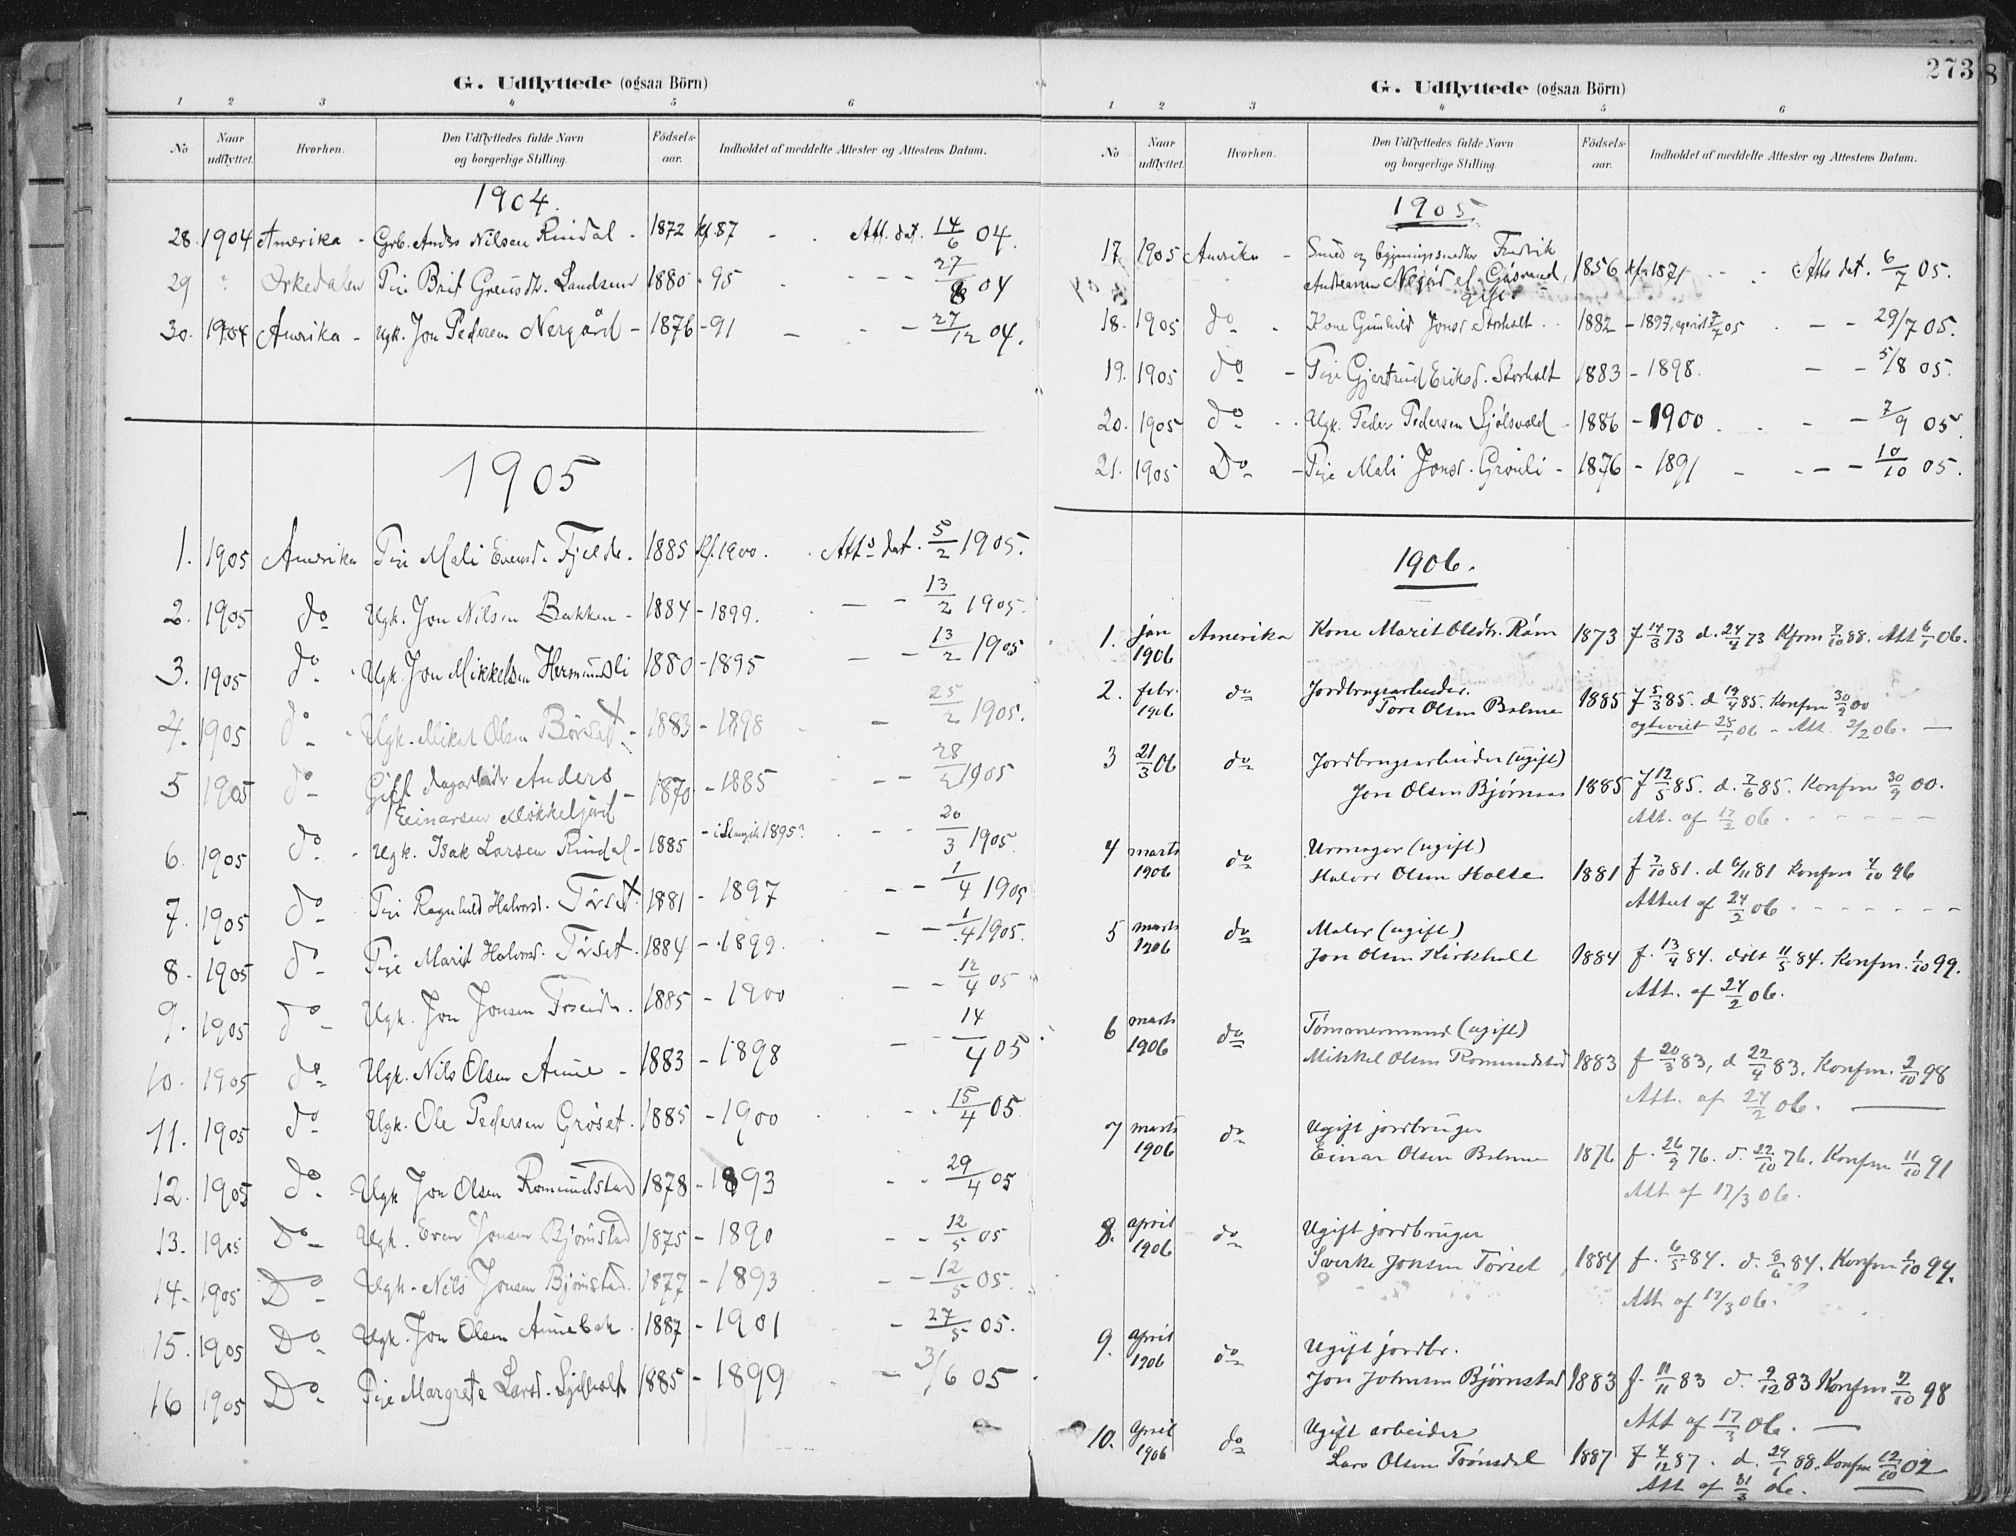 G. Udflyttede (ogsaa Börn)
1 2 3 4 5 6
No Naar udflyttet. Hvorhen. Den Udflyttedes fulde Navn og borgerlige Stilling. Födsels-aar. Indholdet af meddelte Attester og Attestens Datum.
1904.
28. 1904 Amerika - Grb. Anders Nilsen Rindal - 1872 kf. 87 - . Att. dat. 14/6 04.
29 " Orkedalen Pige Brit 1880 - 95 - - - 27/8 04
30. 1904 Amerika - Ugk. Jon Pedersen Nergård - 1876 - 91 - - - 27/12 04.
1905
1. 1905 Amerika Pige Mali Evensd. Fjelde. 1885 kf. 1900. Att. dat. 5/2 1905.
2. 1905 do Ugk. Jon Nilsen Bakken - 1884 - 1899. - - 13/2 1905.
3. 1905 do Ugk. Jon Mikkelsen Hermundsli 1880 - 1895 - - 13/2 1905
4. 1905 do Ugk. Mikal Olsen Børset - 1883 - 1898 - 25/2 1905.
5 1905 do Gift Anders
Einarsen 1870 - 1885 - - 28/2 1905
6. 1905 do - Ugk. Isak Larsen Rindal - 1885 - 1895? - - 20/3 1905.
7. 1905 do Pige Ragnhild Halvorsd. Tørset 1881 - 1897 - - 1/4 1905
8. 1905 do Pige Marit Halvorsd. Tørset. 1884 - 1899. - - 1/4 1905.
9. 1905 do Ugk. Jon Jonsen 1885 - 1900 - - 12/4 05
10. 1905 do Ugk. Nils Olsen Aune - 1883 - 1898 - - 14/4 05
11. 1905 do Ugk. Ole Pedersen Grøset. 1885 - 1900 - - 15/4 05
12. 1905 do Ugk. Jon Olsen Romundstad 1878 - 1893 - - 29/4 05
13. 1905 Do Ugk. Even Jonsen Bjørnstad 1875 - 1890 - - 12/5 05
14. 1905 Do Ugk. Nils Jonsen Bjørnstad. 1877 - 1893 - - 12/5 05.
15. 1905 Do Ugk. Jon Olsen 1887 - 1901 - 27/5 05.
16 1905 Do Pige Margrete Larsd. 1885 - 1899 - 3/6 05
273
G. Udflyttede (ogsaa Börn)
1 2 3 4 5 6
No Naar udflyttet. Hvorhen. Den Udflyttedes fulde Navn og borgerlige Stilling. Födsels-aar. Indholdet af meddelte Attester og Attestens Datum.
1905.
17. 1905 Amerika - Smed og Fredrik
1856 kf. 1871 - . Att. dat. 6/7 05.
18. 1905 do - Kone Gunhild Jonsd. Storholt . . 1882 - 1897, - - 29/7 05.
19. 1905 do - Pige Gjertrud Eriksd. Storholt 1883 - 1898. - - 5/8 05.
20. 1905 do . . Ugk. Peder Pedersen Sjølsvold - 1886 - 1900 - - 7/9 05.
21. 1905 Do - Pige Mali Jonsd. Grønli - 1876 - 1891 - - - 10/10 05.
1906.
1. jan 1906 Amerika Kone Marit Olsdtr. Røm 1873 f 14/3 73 d. 27/4 73 Kfrm 7/10 88. Att 6/1 06.
2. febr. 1906 do Jordbrugsarbeider.
Tore Olsen Bolme 1885 f 5/3 85. d 19/4 85. Konfm 30/9 00
25/1 06 - Att. 2/2 06.
3 21/3 06 do Jordbrugsarbeider (ugift)
Jon Olsen Bjørnaas 1885 f 12/5 85. d. 7/6 85. Konfm 30/9 00.
Att. af 17/2 06.
4 marts 1906 do Urmager (ugift)
Halvor Olsen Holte 1881 f 7/10 81. d 6/11 81 Konfm 4/10 96
Attest af 24/2 06
5 marts 1906 do Maler (ugift)
Jon Olsen Kirkholt 1884 f. 13/4 84. døbt 11/5 84. Konfm. 1/10 99.
Att. af 24/2 06.
6 marts 1906 do Tømmermand (ugift)
Mikkel Olsen Romundstad 1883 f 20/3 83, d 22/4 83. Konfm. 2/10 98
Att. af 24/2 06.
7 marts 1906 do Ugift jordbruger
Einar Olsen Bolme 1876 f. 26/9 76. d. 22/10 76. Konfm 11/10 91
Att af 17/3 06.
8. april 1906 do Ugift jordbruger
Sverke Jonsen Tørset 1884 f. 6/5 84. d. 8/6 84. Konfm 1/10 99.
Att. af 17/3 06.
9. april 1906 do Ugift jordbr.
Jon Johnsen Bjørnstad 1883 f. 11/11 83 d. 9/12 83 Konfm 2/10 98
Att af 17/3 06.
10. april 1906 do Ugift arbeider
Lars Olsen Trønsdal 1887 f 4/12 87. d. 29/1 88. Konfm 12/10 02
Att af 31/3 06.